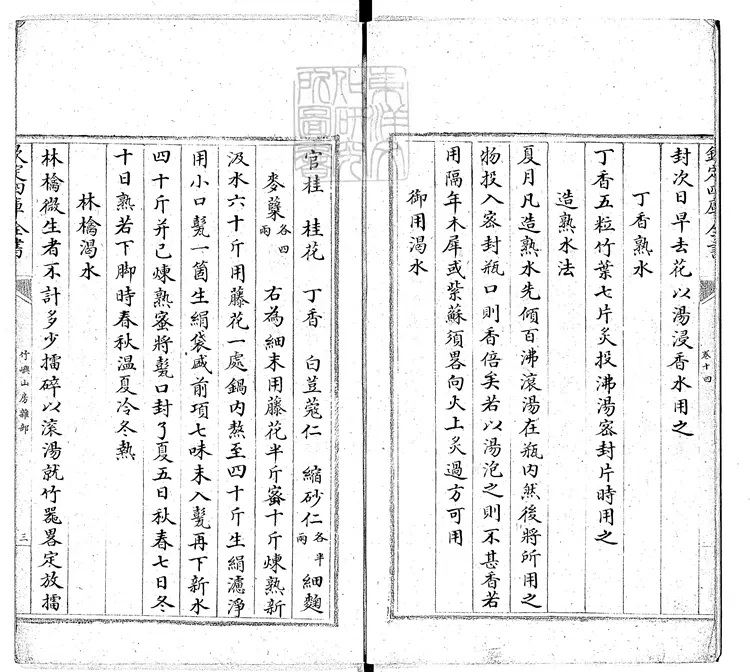 欽定四庫全書
卷十四
封次日早去花以湯浸香水用之
丁香熟水
丁香五粒竹葉七片炙投沸湯密封片時用之
造熟水法
夏月凡造熟水先傾百沸滾湯在瓶內然後將所用之
物投入密封瓶口則香倍矣若以湯泡之則不甚香若
用隔年木犀或紫蘇須畧向火上炙過方可用
御用渴水
官桂 桂花 丁香 白荳蔻仁 縮砂仁各半兩 細麴
麥櫱各四兩 右為細末用藤花半斤蜜十斤煉熟新
汲水六十斤用藤花一處鍋內熬至四十斤生絹濾淨
用小口甕一箇生絹袋盛前項七味末入甕再下新水
四十斤并已煉熟蜜將甕口封了夏五日秋春七日冬
十日熟若下脚時春秋温夏冷冬熱
林檎渴水
林檎微生者不計多少擂碎以滾湯就竹器畧定放擂
欽定四庫全書
竹嶼山房雜部
三